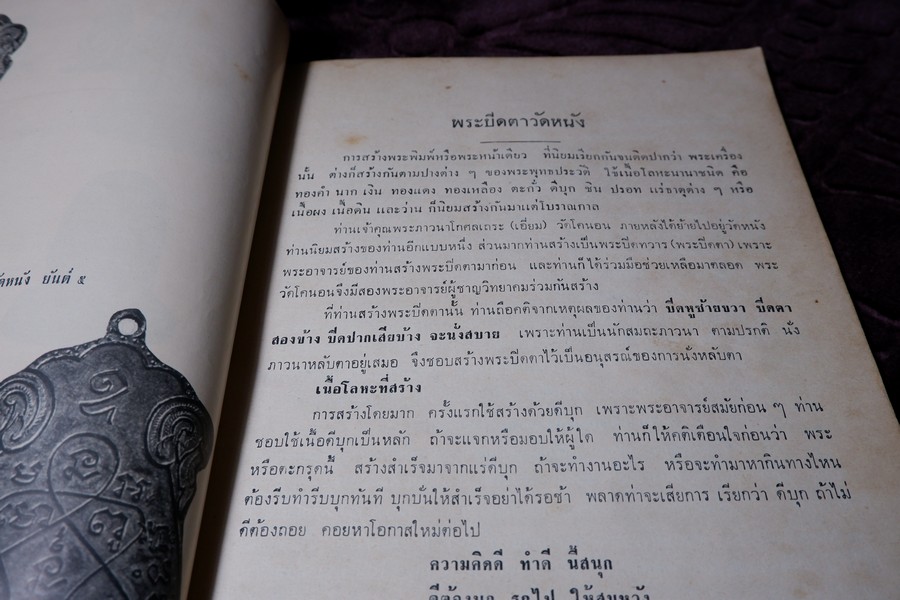 พระปิดตาวัดหนัง
การสร้างพระพิมพ์หรือพระหน้าเดียว ที่นิยมเรียกกันจนติดปากว่า พระเครื่อง
นั้น ต่างก็สร้างกันตามปางต่าง ๆ ของพระพุทธประวัติ ใช้เนื้อโลหะนานาชนิด คือ
ทองคำ นาก เงิน ทองแดง ทองเหลือง ตะกั่ว ดีบุก ชิน ปรอท แร่ธาตุต่าง ๆ หรือ
เนื้อผง เนื้อดิน และว่าน ก็นิยมสร้างกันมาแต่โบราณกาล
ท่านเจ้าคุณพระภาวนาโกศลเถระ (เอี่ยม) วัดโคนอน ภายหลังได้ย้ายไปอยู่วัดหนัง
ท่านนิยมสร้างของท่านอีกแบบหนึ่ง ส่วนมากท่านสร้างเป็นพระปิดทวาร (พระปิดตา) เพราะ
พระอาจารย์ของท่านสร้างพระปิดตามาก่อน และท่านก็ได้ร่วมมือช่วยเหลือมาตลอด พระ
วัดโคนอนจึงมีสองพระอาจารย์ผู้ชาญวิทยาคมร่วมกันสร้าง
ที่ท่านสร้างพระปิดตานั้น ท่านถือคติจากเหตุผลของท่านว่า ปิดหูซ้ายขวา ปิดตา
สองข้าง ปิดปากเสียบ้าง จะนั่งสบาย เพราะท่านเป็นนักสมถะภาวนา ตามปรกติ นั่ง
ภาวนาหลับตาอยู่เสมอ จึงชอบสร้างพระปิดตาไว้เป็นอนุสรณ์ของการนั่งหลับตา
เนื้อโลหะที่สร้าง
การสร้างโดยมาก ครั้งแรกใช้สร้างด้วยดีบุก เพราะพระอาจารย์สมัยก่อน ๆ ท่าน
ชอบใช้เนื้อดีบุกเป็นหลัก ถ้าจะแจกหรือมอบให้ผู้ใด ท่านก็ให้คติเตือนใจก่อนว่า พระ
หรือตะกรุดนี้ สร้างสำเร็จมาจากแร่ดีบุก ถ้าจะทำงานอะไร หรือจะทำมาหากินทางไหน
ต้องรีบทำรีบบุกทันที บุกบั่นให้สำเร็จอย่าได้รอช้า พลาดท่าจะเสียการ เรียกว่า ดีบุก ถ้าไม่
ดีต้องถอย คอยหาโอกาสใหม่ต่อไป
ความคิดดี ทำดี นี้สนุก
ดีต้องบุก รุกไป ให้สมหวัง
หนัง ยันต์ ๕